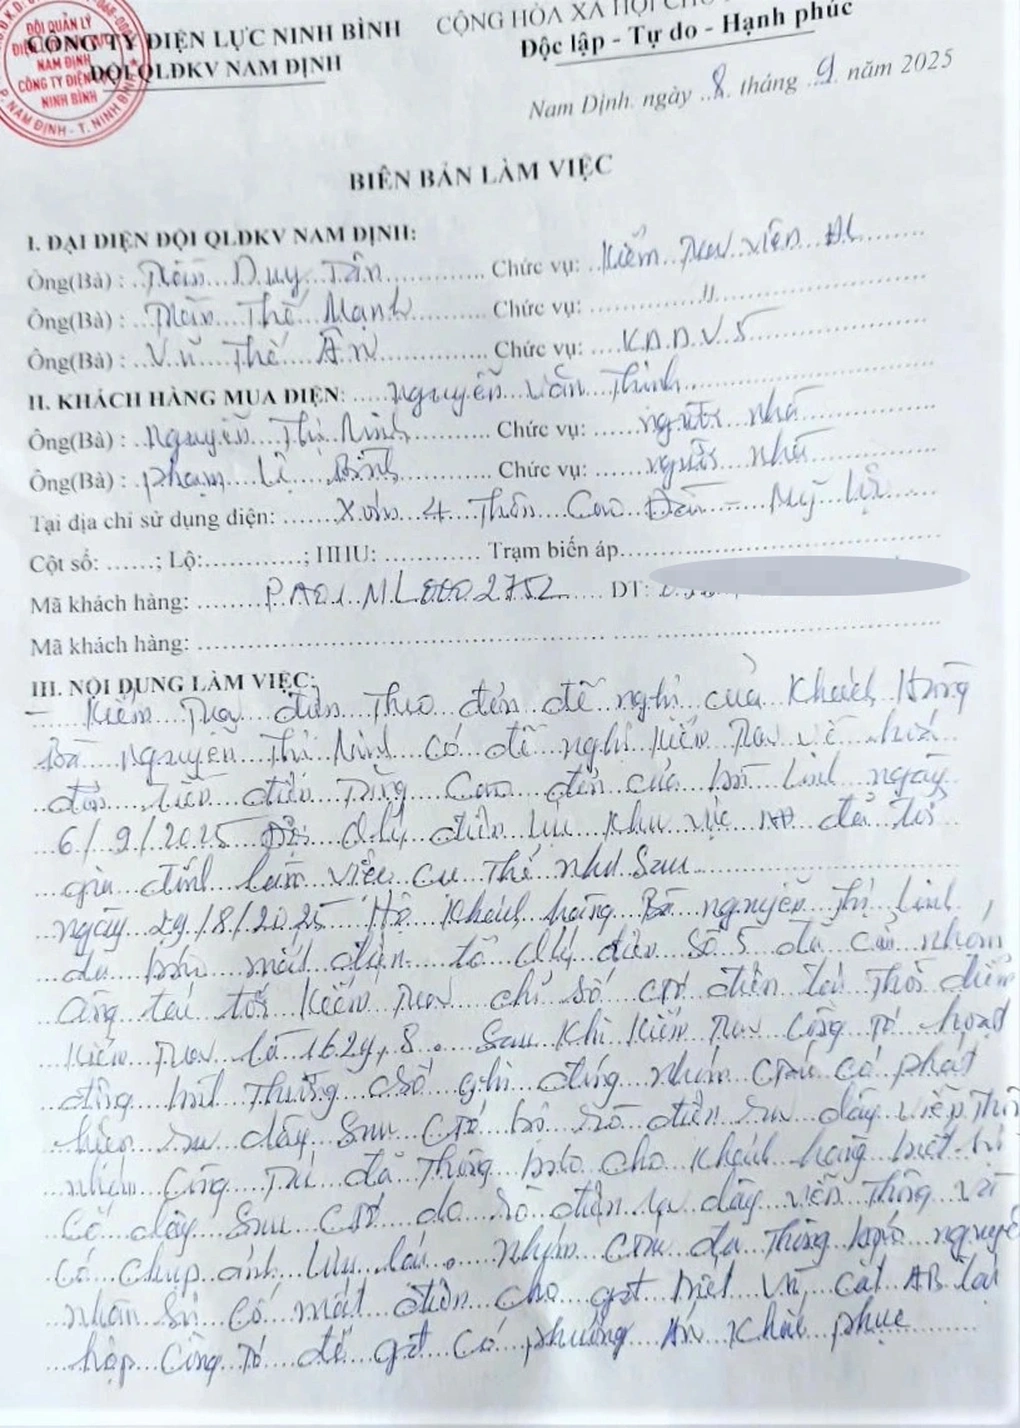 CÔNG TY ĐIỆN LỰC NINH BÌNH
ĐỘI QLĐKV NAM ĐỊNH
CỘNG HÒA XÃ HỘI CH
Độc lập - Tự do - Hạnh phúc
Nam Định, ngày 8 tháng 9 năm 2025
ĐỘI QUẢN LÝ
NAM ĐỊNH
CÔNG TY ĐIỆN
NINH BÌNH
P. NAM ĐỊNH - T. NINH BÌNH
BIÊN BẢN LÀM VIỆC
I. ĐẠI DIỆN ĐỘI QLĐKV NAM ĐỊNH:
Ông(Bà) : Trần Duy Tân Chức vụ: Kiểm tra viên ĐL
Ông(Bà) : Trần Thế Mạnh Chức vụ: "
Ông(Bà) : Vũ Thế Ân Chức vụ: K.D.D.V.5
II. KHÁCH HÀNG MUA ĐIỆN: Nguyễn Văn Thinh
Ông(Bà) : Nguyễn Thị Ninh Chức vụ: người nhà
Ông(Bà) : Phạm Bình Chức vụ: người nhà
Tại địa chỉ sử dụng điện: Xóm 4 Thôn Cao Đài - Mỹ Lộc
Cột số: ......; Lộ:............; HHU: ............ Trạm biến áp
Mã khách hàng: PA01ML0002752 ĐT:
Mã khách hàng:
III. NỘI DUNG LÀM VIỆC:
- Kiểm tra điện theo đơn đề nghị của Khách Hàng
Bà Nguyễn Thị Ninh có đề nghị kiểm tra về hoá
đơn tiền điện tăng cao đơn của bà ngày
6/9/2025 Đội Qlý điện lực khu vực NĐ đã tới
gia đình làm việc cụ thể như sau
ngày 29/8/2025 Hộ khách hàng Bà Nguyễn Thị
đã báo mất điện tổ Qlý điện số 5 đã cử nhóm
công tác tới kiểm tra chỉ số CT điện tại thời điểm
kiểm tra là 1629,8. Sau khi kiểm tra công tơ hoạt
động bình thường chỉ số ghi đúng nhóm CTác có phát
hiện ra dây sau CTơ bị rò điện ra dây viễn thông
nhóm công tác đã thông báo cho khách hàng biết bị
cố dây sau CTơ do rò điện ra dây viễn thông và
có chụp ảnh lưu lại. nhóm CTác đã thông báo nguyên
nhân sự cố mất điện cho gđ biết và cắt AB tại
hộp công tơ để gđ có phương án khắc phục